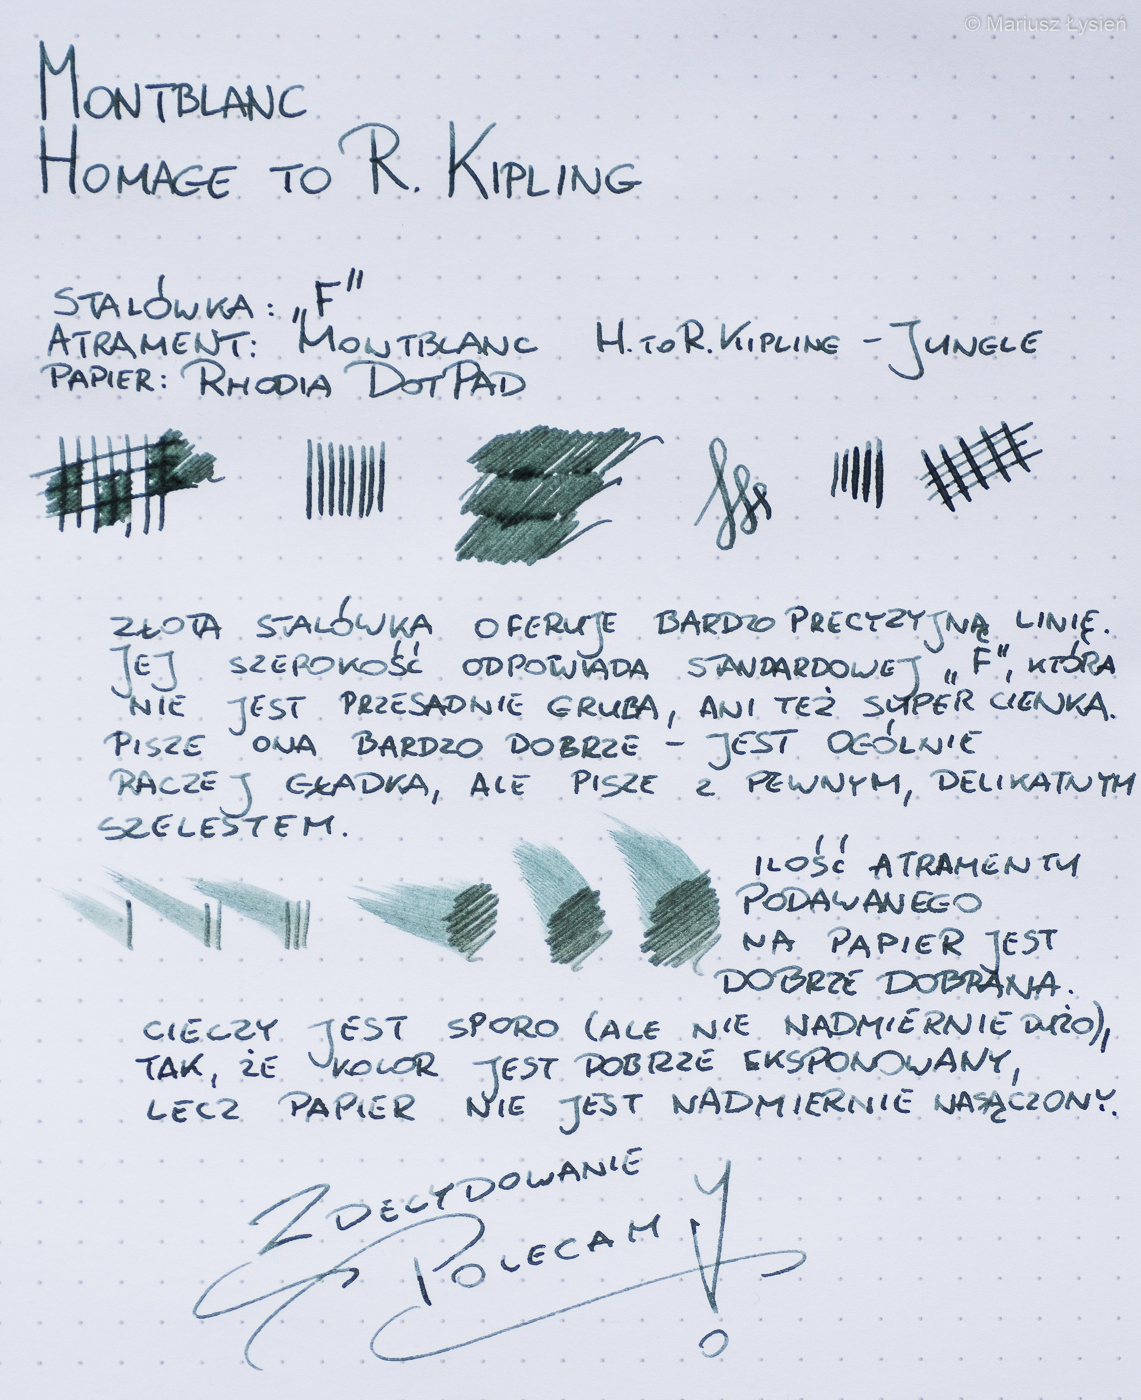 © Mariusz Łysień
MONTBLANC
HOMAGE TO R. KIPLING
STALÓWKA: „F”
ATRAMENT: MONTBLANC H. TO R. KIPLING - JUNGLE
PAPIER: RHODIA DOTPAD
ZŁOTA STALÓWKA OFERUJE BARDZO PRECYZYJNĄ LINIĘ.
JEJ SZEROKOŚĆ ODPOWIADA STANDARDOWEJ „F”, KTÓRA
NIE JEST PRZESADNIE GRUBA, ANI TEŻ SUPER CIENKA.
PISZE ONA BARDZO DOBRZE - JEST OGÓLNIE
RACZEJ GŁADKA, ALE PISZE Z PEWNYM, DELIKATNYM
SZELESTEM.
ILOŚĆ ATRAMENTU
PODAWANEGO
NA PAPIER JEST
DOBRZE DOBRANA.
CIECZY JEST SPORO (ALE NIE NADMIERNIE DUŻO),
TAK, ŻE KOLOR JEST DOBRZE EKSPONOWANY,
LECZ PAPIER NIE JEST NADMIERNIE NASĄCZONY.
ZDECYDOWANIE
POLECAM!